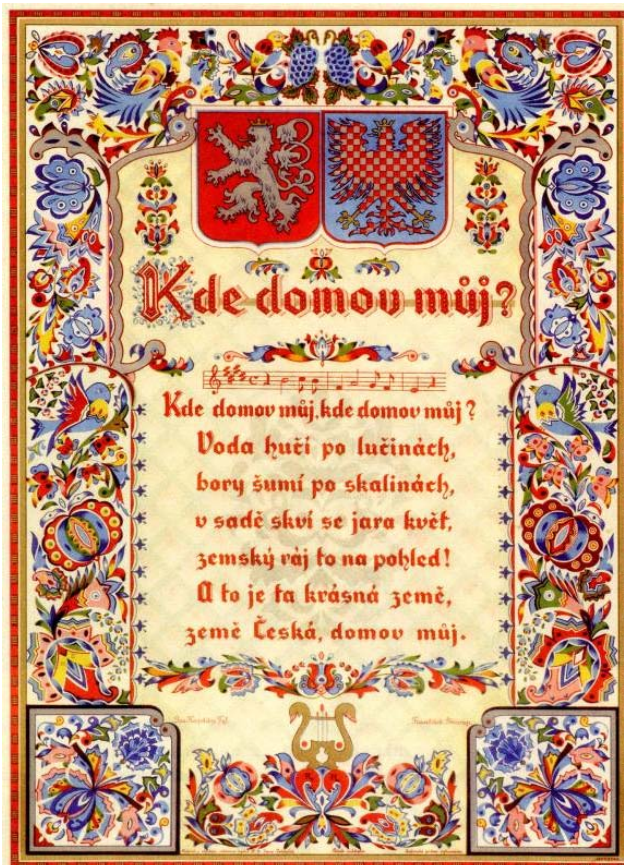 Kde domov můj?
Kde domov můj, kde domov můj?
Voda hučí po lučinách,
bory šumí po skalinách,
v sadě skví se jara květ,
zemský ráj to na pohled!
A to je ta krásná země,
země Česká, domov můj.